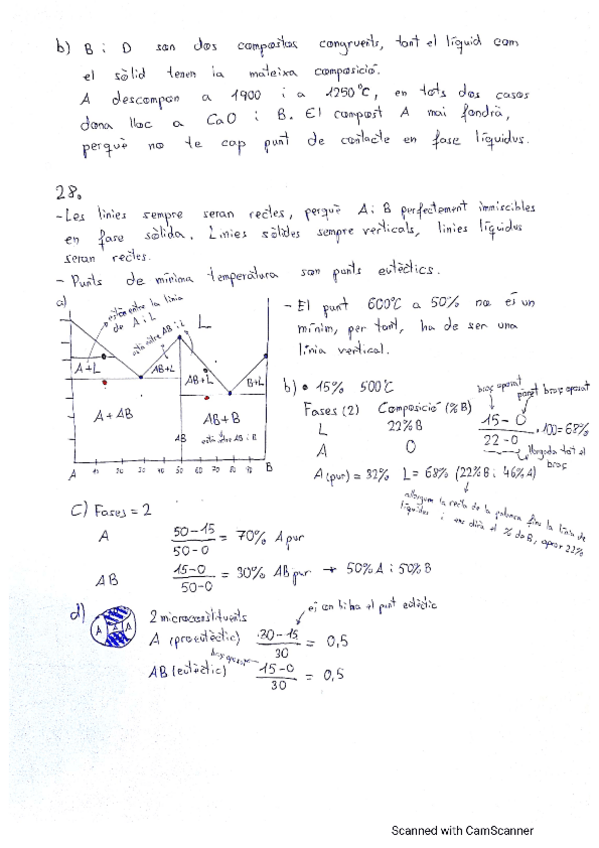 b) B i D son dos compostos congruents, tant el líquid com
el sòlid tenen la mateixa composició.
A descompon a 1900 i a 1250°C, en tots dos casos
dona lloc a CaO i B. El compost A mai fondrà,
perquè no te cap punt de contacte en fase líquidus.
28.
-Les línies sempre seran rectes, perquè A i B perfectament immiscibles
en fase sòlida. Línies sòlides sempre verticals, línies líquidus
seran rectes.
- Punts de mínima temperatura son punts eutèctics.
a)
estan entre la línia
de A i L
esta entre AB i L
L
A+L
AB+L
AB+L
B+L
A + AB
AB + B
AB
esta entre AB i B
A 10 20 30 40 50 60 70 80 90 B
- El punt 600°C a 50% no és un
mínim, per tant, ha de ser una
línia vertical.
b) • 15% 500°C
Fases (2) Composició (%B)
L 22%B
A 0
braç oposat
15-0 / 22-0 · 100 = 68%
llargada tot el
braç
A(pur) = 32% L = 68% (22%B i 46%A)
c) Fases = 2
A 50-15 / 50-0 = 70% A pur
AB 15-0 / 50-0 = 30% AB pur → 50%A i 50%B
d) A A
2 microconstituents
és on hi ha el punt eutèctic
A (proeutèctic) 30-15 / 30 = 0,5
braç oposat
AB (eutèctic) 15-0 / 30 = 0,5
Scanned with CamScanner